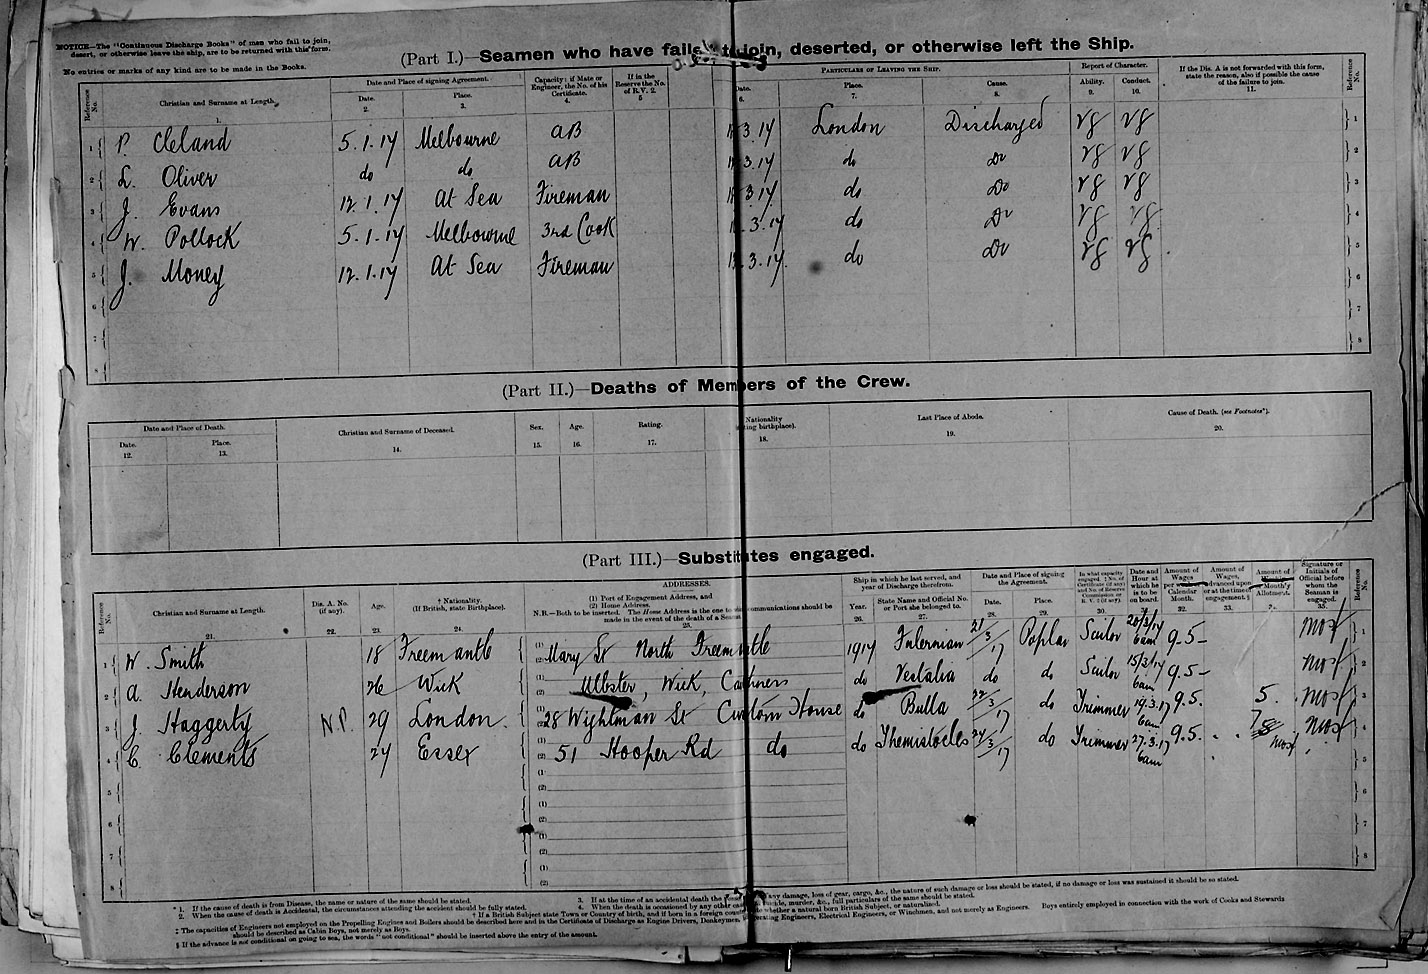 NOTICE—The "Continuous Discharge Books" of men who fail to join,
desert, or otherwise leave the ship, are to be returned with this form.
No entries or marks of any kind are to be made in the Books.
(Part I.)—Seamen who have failed to join, deserted, or otherwise left the Ship.
Reference No. Christian and Surname at Length. 1. Date and Place of signing Agreement. Date. 2. Place. 3. Capacity: if Mate or Engineer, the No. of his Certificate. 4. If in the Reserve the No. of R.V. 2. 5 Particulars of Leaving the Ship. Date. 6. Place. 7. Cause. 8. Report of Character. Ability. 9. Conduct. 10. If the Dis. A is not forwarded with this form, state the reason, also if possible the cause of the failure to join. 11. Reference No.
1 P. Cleland 5.1.17 Melbourne AB 3.17 London Discharged VG VG 1
2 L. Oliver do do AB 3.17 do Do VG VG 2
3 J. Evans 12.1.17 At Sea Fireman 3.17 do Do VG VG 3
4 W. Pollock 5.1.17 Melbourne 3rd Cook 3.17 do Do VG VG 4
5 J. Money 12.1.17 At Sea Fireman 3.17. do Do VG VG 5
6 6
7 7
8 8
(Part II.)—Deaths of Members of the Crew.
Date and Place of Death. Date. 12. Place. 13. Christian and Surname of Deceased. 14. Sex. 15. Age. 16. Rating. 17. Nationality (stating birthplace). 18. Last Place of Abode. 19. Cause of Death. (see Footnotes*). 20.
(Part III.)—Substitutes engaged.
Reference No. Christian and Surname at Length. 21. Dis. A. No. (if any). 22. Age. 23. † Nationality. (If British, state Birthplace). 24. ADDRESSES. (1) Port of Engagement Address, and (2) Home Address. N.B.—Both to be inserted. The Home Address is the one to which communications should be made in the event of the death of a Seaman. 25. Ship in which he last served, and year of Discharge therefrom. Year. 26. State Name and Official No. or Port she belonged to. 27. Date and Place of signing the Agreement. Date. 28. Place. 29. In what capacity engaged 30. Date and Hour at which he is to be on board. 31. Amount of Wages per week or Calendar Month. 32. Amount of Wages, advanced upon or at the time of engagement.§ 33. Amount of Monthly Allotment. 34. Signature or Initials of Official before whom the Seaman is engaged. 35. Reference No.
1 W. Smith 18 Freemantle (1) Mary St North Freemantle 1917 Falernian 21/3/17 Poplar Sailor 20/3/17 6am 9.5- 1
2 A. Henderson 26 Wick (2) Ulbster, Wick, Caithness do Vestalia do do Sailor 6am 9.5- 2
3 J. Haggerty N.P. 29 London. 28 Wightman St Custom House do Bulla 22/3/17 do Trimmer 19.3.17 6am 9.5. 5. 3
4 C. Clements 24 Essex 51 Hooper Rd do do Themistocles 24/3/17 do Trimmer 27.3.17 6am 9.5. 4
5 (1) (2) 5
6 (1) (2) 6
7 (1) (2) 7
8 (1) (2) 8
* 1. If the cause of death is from Disease, the name or nature of the same should be stated.
2. When the cause of death is Accidental, the circumstances attending the accident should be fully stated.
3. If at the time of an accidental death the any damage, loss of gear, cargo, &c., the nature of such damage or loss should be stated, if no damage or loss was sustained it should be so stated.
4. When the death is occasioned by any other murder, &c., full particulars of the same should be stated.
† If a British Subject state Town or Country of birth, and if born in a foreign country whether a natural born British Subject, or naturalized.
‡ The capacities of Engineers not employed on the Propelling Engines and Boilers should be described here and in the Certificate of Discharge as Engine Drivers, Donkeymen, Refrigerating Engineers, Electrical Engineers, or Winchmen, and not merely as Engineers. Boys entirely employed in connection with the work of Cooks and Stewards
should be described as Cabin Boys, not merely as Boys.
§ If the advance is not conditional on going to sea, the words "not conditional" should be inserted above the entry of the amount.